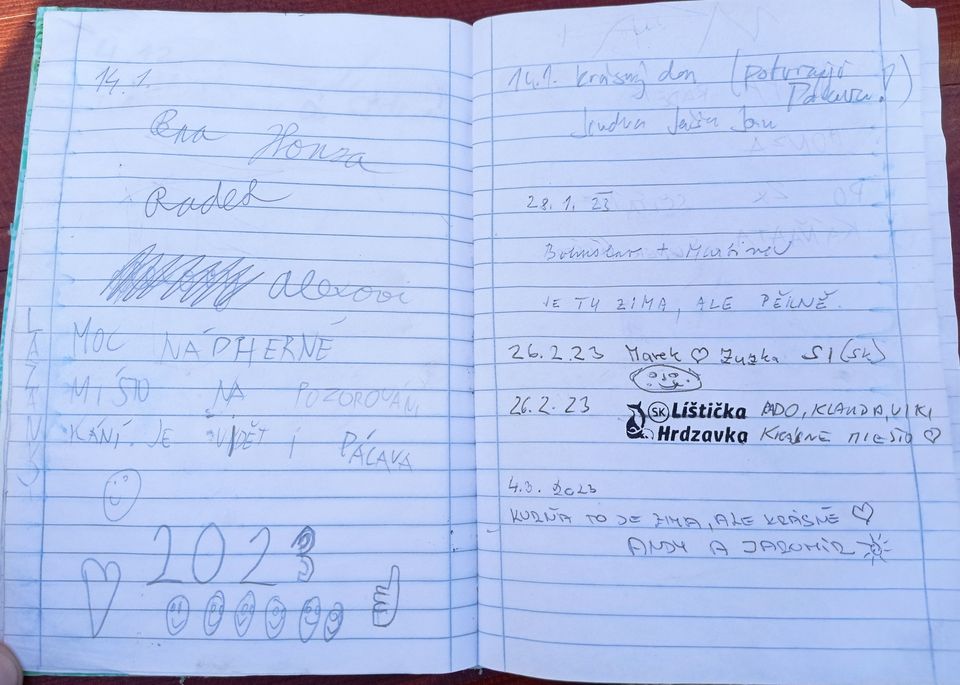 14.1.
Honza
Radek
Alexovi
MOC NÁDHERNÉ
MÍSTO NA POZOROVÁNÍ
KÁNÍ. JE VIDĚT I PÁLAVA
2023
14.1. krásný den (potvrzují
Pálavu!)
Jindra Jan
28.1. 23
Bohuslava + Martina
JE TU ZIMA, ALE PĚKNĚ.
26.2.23 Marek ♡ Zuzka SI (SK)
26.2.23 SK Líštička Hrdzavka ĎADO, KLAUDA, VIKI
KRÁSNE MIESTO ♡
4.3. 2023
KURŇA TO JE ZIMA, ALE KRÁSNĚ ♡
ANDY A JAROMÍR